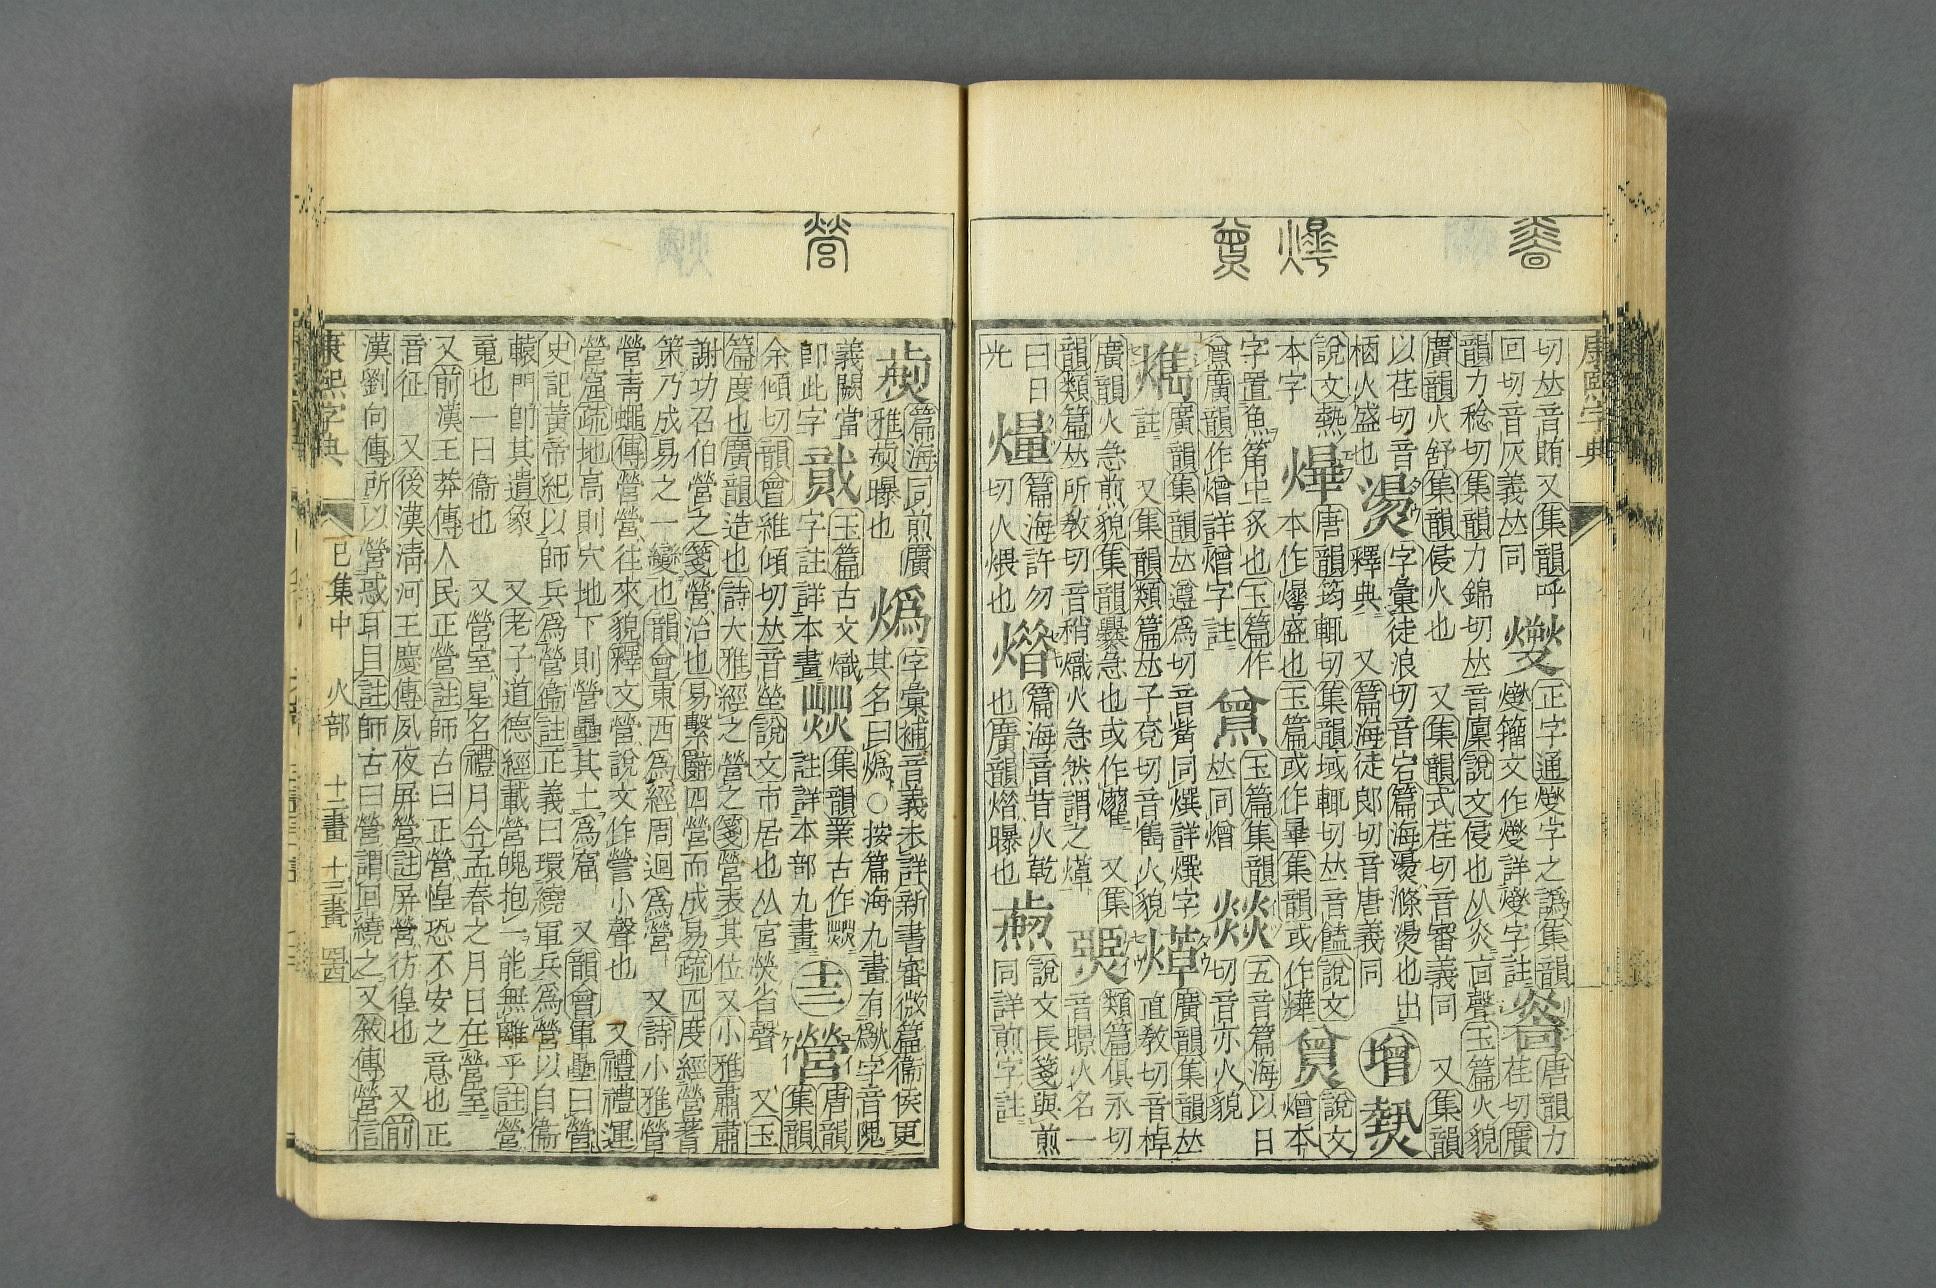 康熙字典
切𠀤音賄又集韻呼
回切音灰義𠀤同
正字通燮字之譌集韻
燮籀文作燮詳燮字註
唐韻力
荏切廣
韻力稔切集韻力錦切𠀤音廩說文侵也从炎㐭聲玉篇火貌
廣韻火舒集韻侵火也 又集韻式荏切音審義同 又集韻
以荏切音
栖火盛也
燙
字彙徒浪切音宕篇海燙滌燙也出
釋典 又篇海徒郎切音唐義同
增
說文熱
本字
燁
唐韻筠輒切集韻域輒切𠀤音饁說文
本作爗盛也玉篇或作曅集韻或作爗
說文
熷本
字置魚筩中炙也玉篇作
廣韻作熷詳熷字註
玉篇集韻
𠀤同熷
燚
五音篇海以日
切音亦火貌
廣韻集韻𠀤遵爲切音觜同詳字
註 又集韻類篇𠀤子兗切音雋火貌
㷹
廣韻集韻𠀤
直教切音棹
廣韻火急煎貌集韻爆急也或作燿 又集
韻類篇𠀤所教切音稍熾火急然謂之㷹
類篇俱永切
音暻火名一
曰日
光
篇海許勿
切火煨也
篇海音昔火乾
也廣韻曝也
說文長箋與煎
同詳煎字註
營
篇海同煎廣
雅曝也
字彙補音義未詳新書審微篇衞侯更
其名曰○按篇海九畫有字音隗
義闕當
卽此字
玉篇古文熾
字註詳本畫
集韻業古作
註詳本部九畫
十三
營
唐韻
集韻
余傾切韻會維傾切𠀤音塋說文市居也从宮熒省聲 又玉
篇度也廣韻造也詩大雅經之營之箋營表其位又小雅肅肅
謝功召伯營之箋營治也易繫辭四營而成易疏四度經營蓍
策乃成易之一變也韻會東西爲經周迴爲營 又詩小雅營
營靑蠅傳營營往來貌釋文營說文作謍小聲也 又禮禮運
營窟疏地高則穴地下則營壘其土爲窟 又韻會軍壘曰營
史記黃帝紀以師兵爲營衞註正義曰環繞軍兵爲營以自衞
轅門卽其遺象 又老子道德經載營魄抱一能無離乎註營
䰟也一曰衞也 又營室星名禮月令孟春之月日在營室
又前漢王莽傳人民正營註師古曰正營惶恐不安之意也正
音征 又後漢淸河王慶傳夙夜屛營註屛營彷徨也 又前
漢劉向傳所以營惑耳目註師古曰營謂回繞之又敘傳營信
康熙字典 巳集中 火部 十二畫 十三畫 四